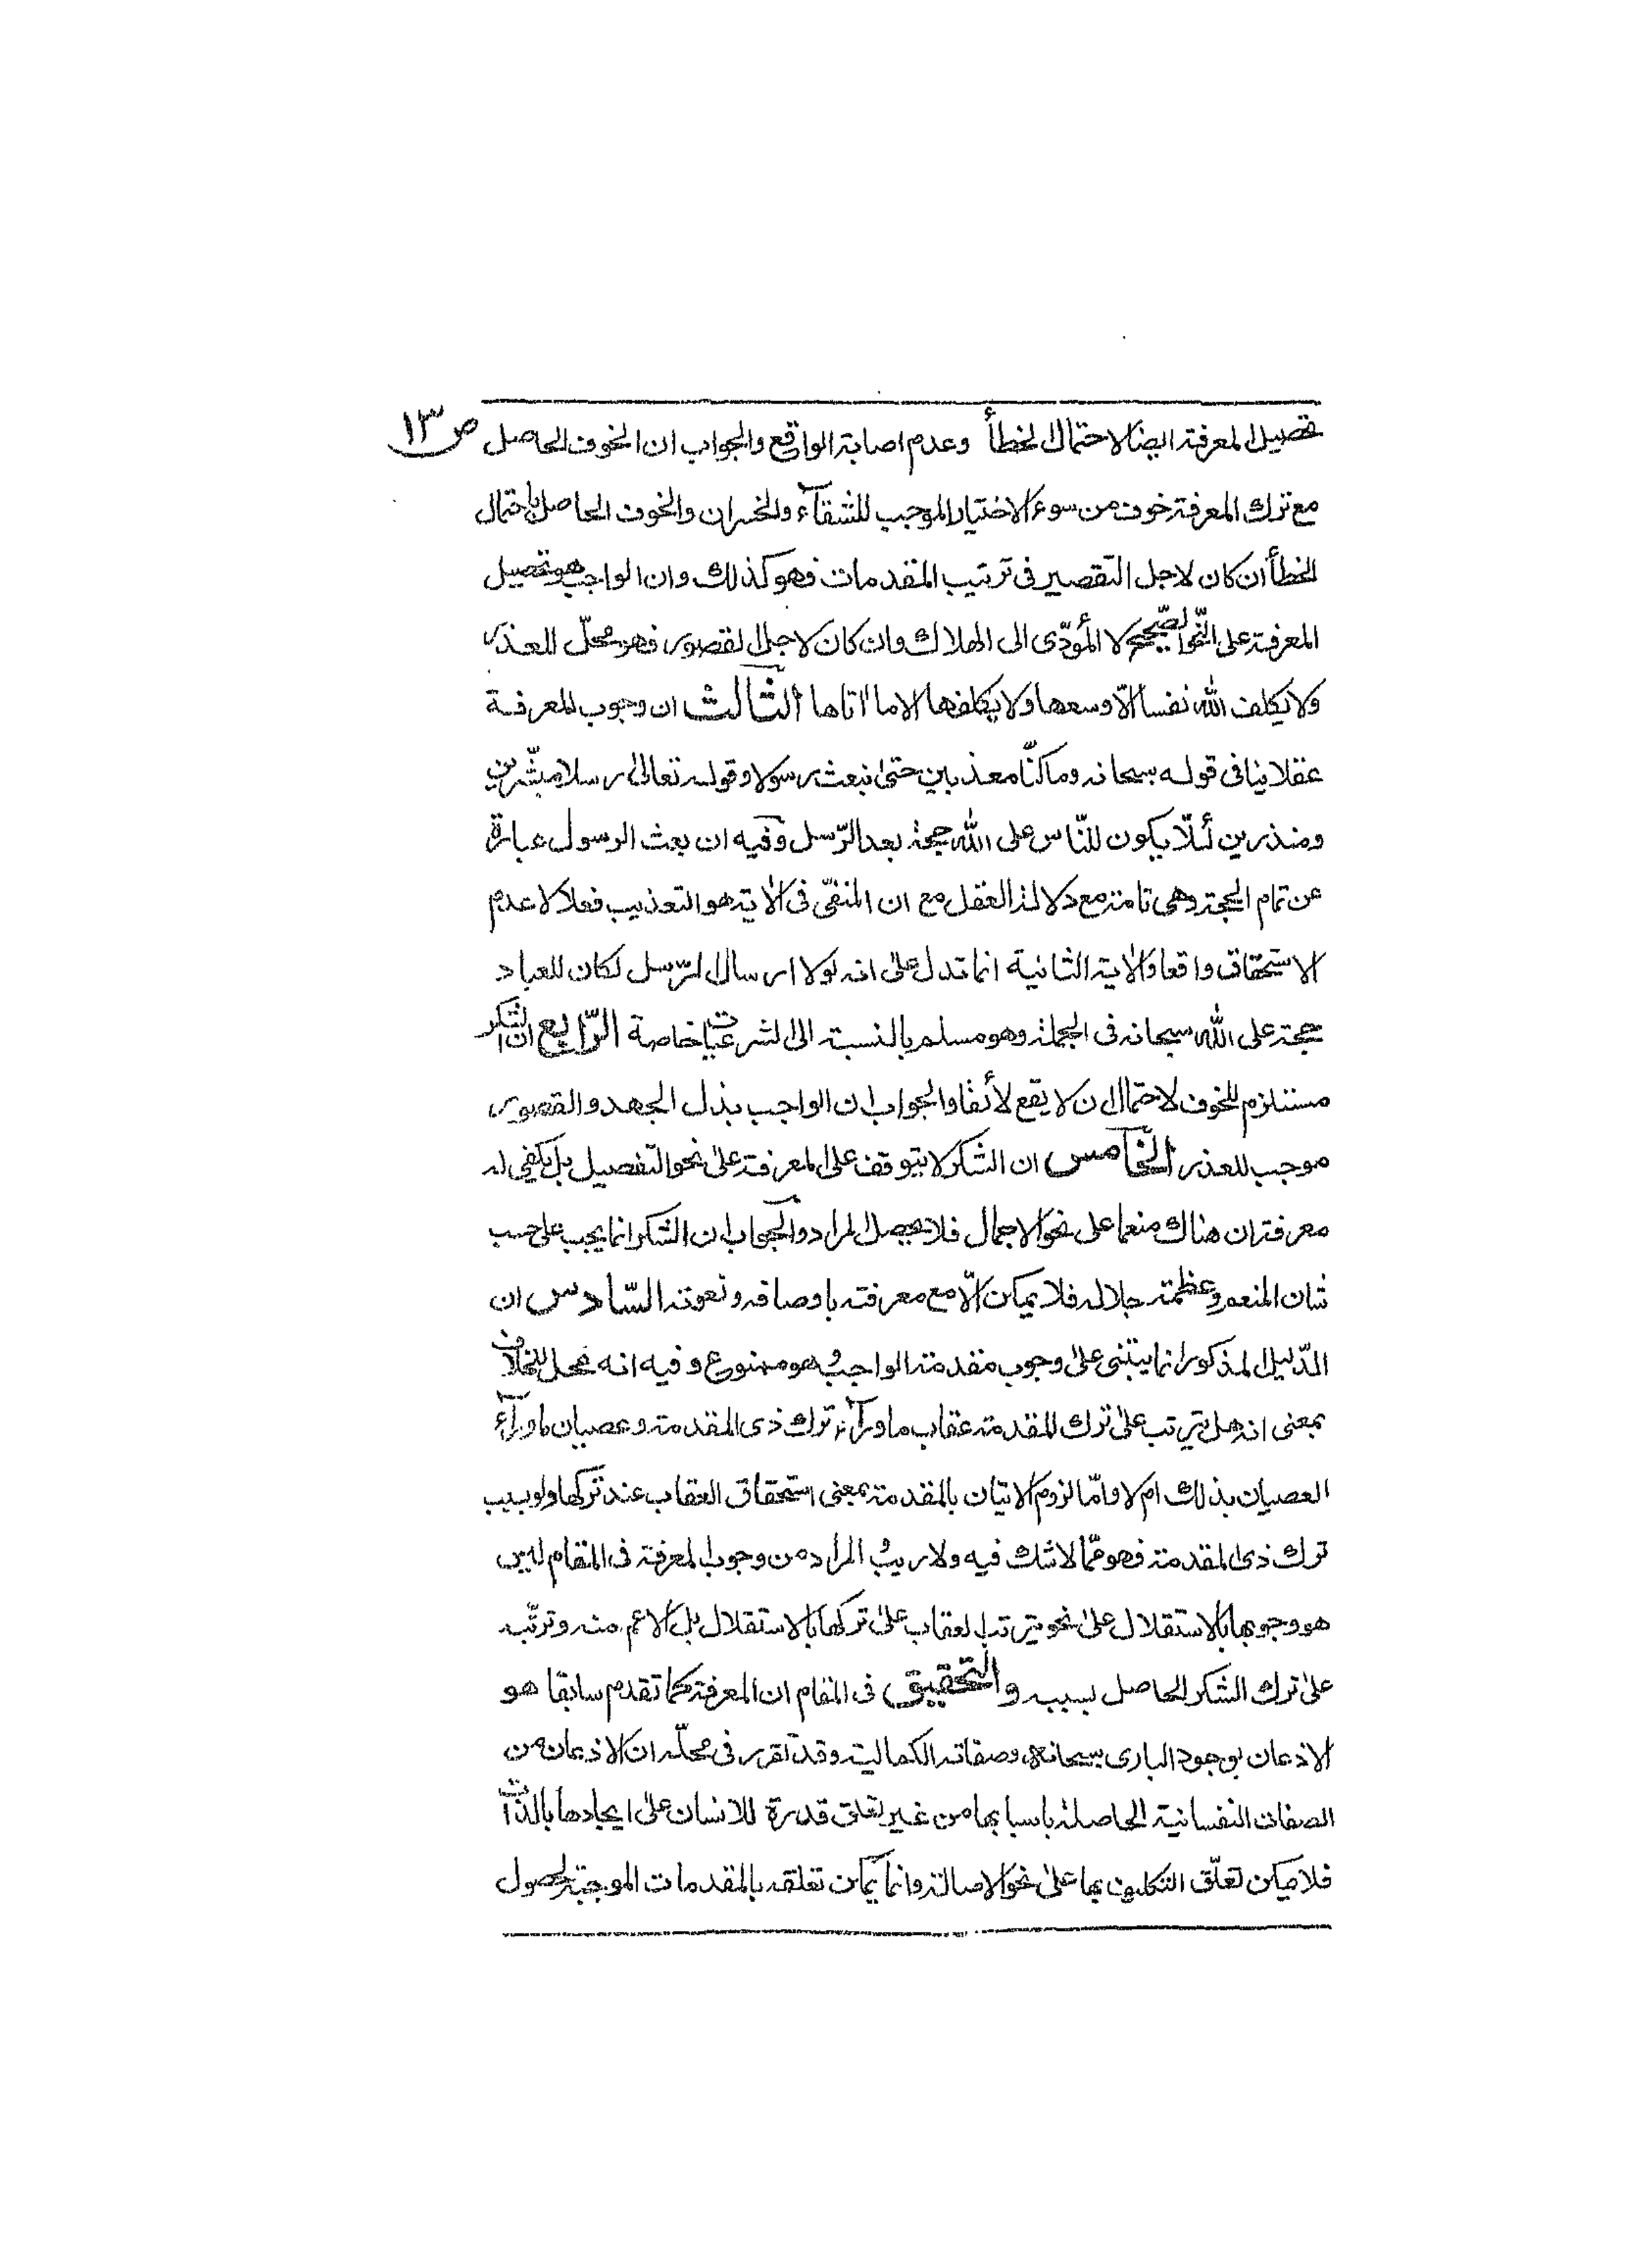 ص ١٣
تحصيل المعرفة ايضا لاحتمال الخطأ وعدم اصابة الواقع والجواب ان الخوف الحاصل
مع ترك المعرفة خوف من سوء الاختيار الموجب للشقآء والخسران والخوف الحاصل باحتمال
الخطأ ان كان لاجل التقصير فى ترتيب المقدمات فهو كذلك وان الواجب هو تحصيل
المعرفة على النّحو الصّحيح لا المؤدّى الى الهلاك وان كان لاجل القصور فهو محلّ للعذر
ولا يكلف الله نفسا الّا وسعها ولا يكلفها الا ما اتاها الثّالث ان وجوب المعرفة
عقلا ينافى قوله سبحانه وما كنّا معذبين حتى نبعث رسولا وقوله تعالى رسلا مبشّرين
ومنذرين لئلّا يكون للنّاس على الله حجة بعد الرّسل وفيه ان بعث الرسول عبارة
عن تمام الحجة وهى تامة مع دلالة العقل مع ان المنفىّ فى الاية هو التعذيب فعلا لا عدم
الاستحقاق واقعا والاية الثانية انما تدل على انه لولا ارسال الرّسل لكان للعباد
حجة على الله سبحانه فى الجملة وهو مسلم بالنسبة الى الشرعيات خاصة الرّابع ان الشكر
مستلزم للخوف لاحتمال ان لا يقع لائقا والجواب ان الواجب بذل الجهد والقصور
موجب للعذر الخامس ان الشكر لا يتوقف على المعرفة على نحو التفصيل بل يكفى له
معرفة ان هناك منعما على نحو الاجمال فلا يحصل المراد والجواب ان الشكر انما يجب على حسب
شان المنعم وعظمة جلاله فلا يمكن الّا مع معرفته باوصافه ونعوته السّادس ان
الدّليل المذكور انما يبتنى على وجوب مقدمة الواجب وهو ممنوع وفيه انه محل للخلاف
بمعنى انه هل يترتب على ترك المقدمة عقاب ما ورآء ترك ذى المقدمة وعصيان ما ورآء
العصيان بذلك ام لا وامّا لزوم الاتيان بالمقدمة بمعنى استحقاق العقاب عند تركها ولو بسبب
ترك ذى المقدمة فهو ممّا لا شك فيه ولا ريب والمراد من وجوب المعرفة فى المقام ليس
هو وجوبها بالاستقلال على نحو يترتب العقاب على تركها بالاستقلال بل الاعم منه وترتّبه
على ترك الشكر الحاصل بسببه والتحقيق فى المقام ان المعرفة كما تقدم سابقا هو
الاذعان بوجود البارى سبحانه وصفاته الكمالية وقد تقرر فى محلّه ان الاذعان من
الصفات النفسانية الحاصلة باسبابها من غير تعلق قدرة للانسان على ايجادها بالذات
فلا يمكن تعلّق التكليف بها على نحو الاصالة وانما يمكن تعلقه بالمقدمات الموجبة لحصول